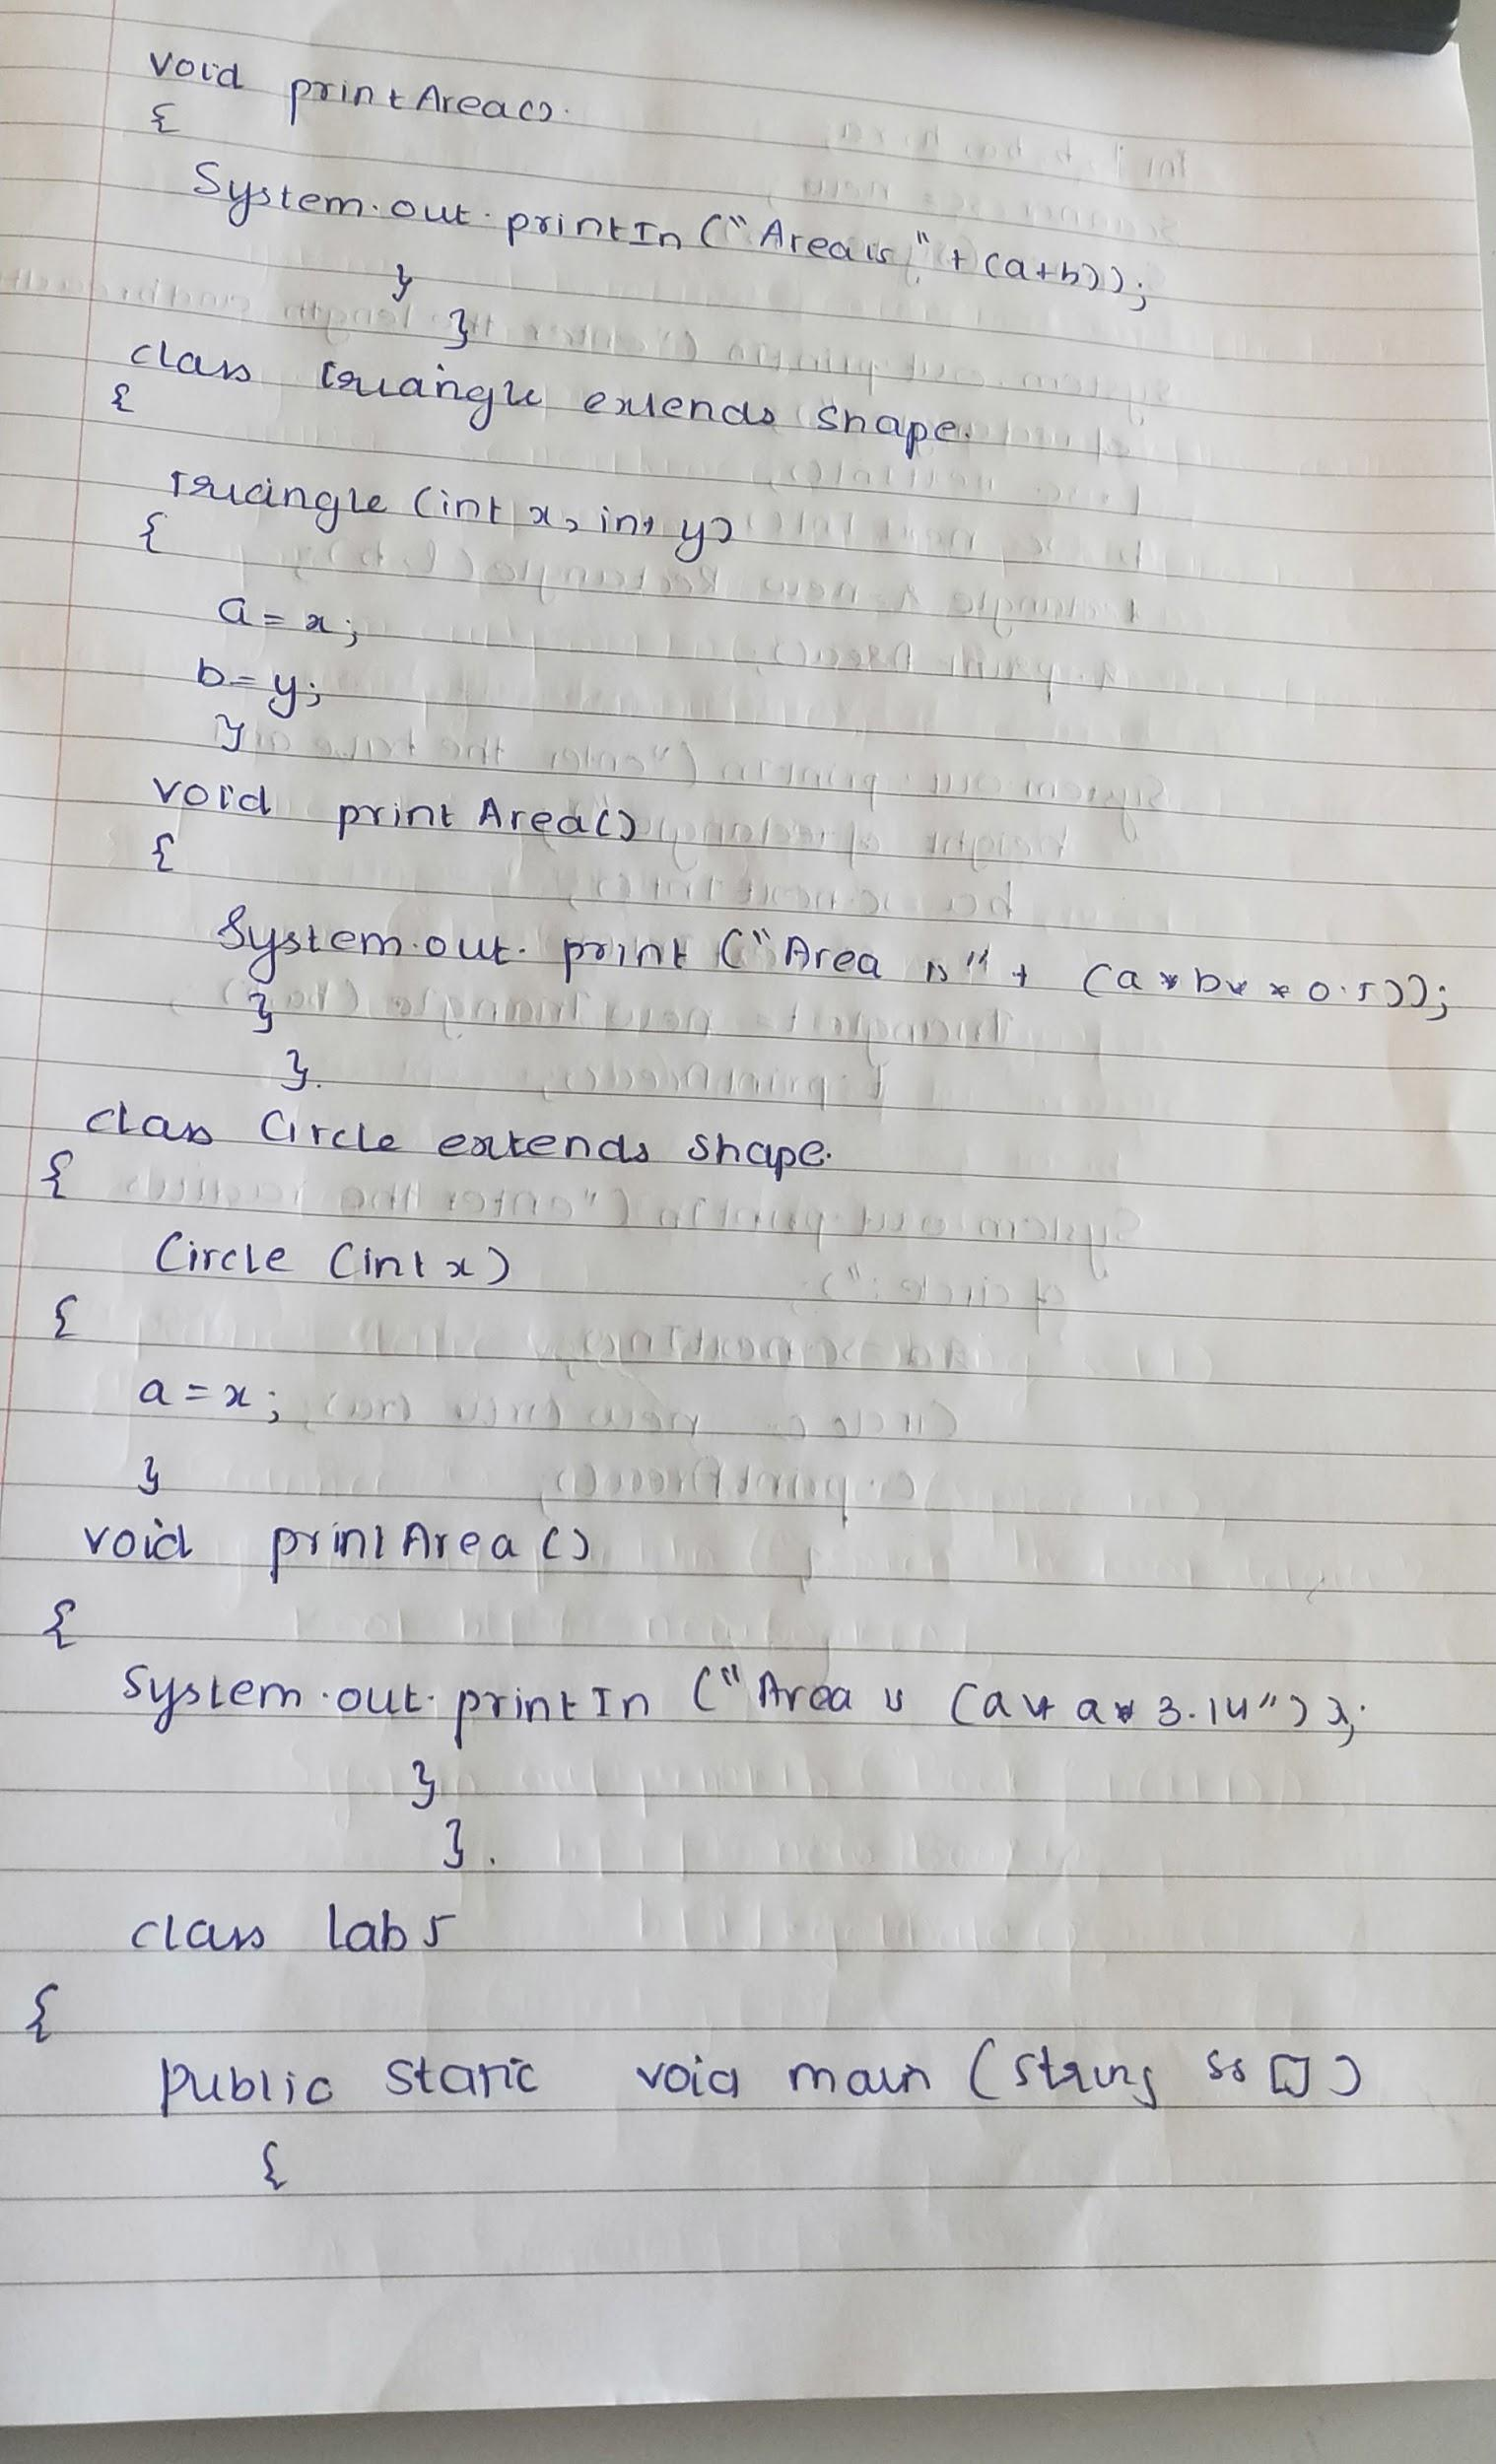 void printArea()
{
System.out.printIn ("Area is" + (a+b));
}
}
class triangle extends shape.
{
Triangle (int x, int y)
{
a = x;
b = y;
}
void print Area()
{
System.out. print ("Area is" + (a * b* * 0.5));
}
}.
class Circle extends shape.
{
Circle (int x)
{
a = x;
}
void print Area ()
{
System.out.printIn ("Area is (a * a * 3.14"));
}
}.
class lab 5
{
public static void main (string ss [])
{